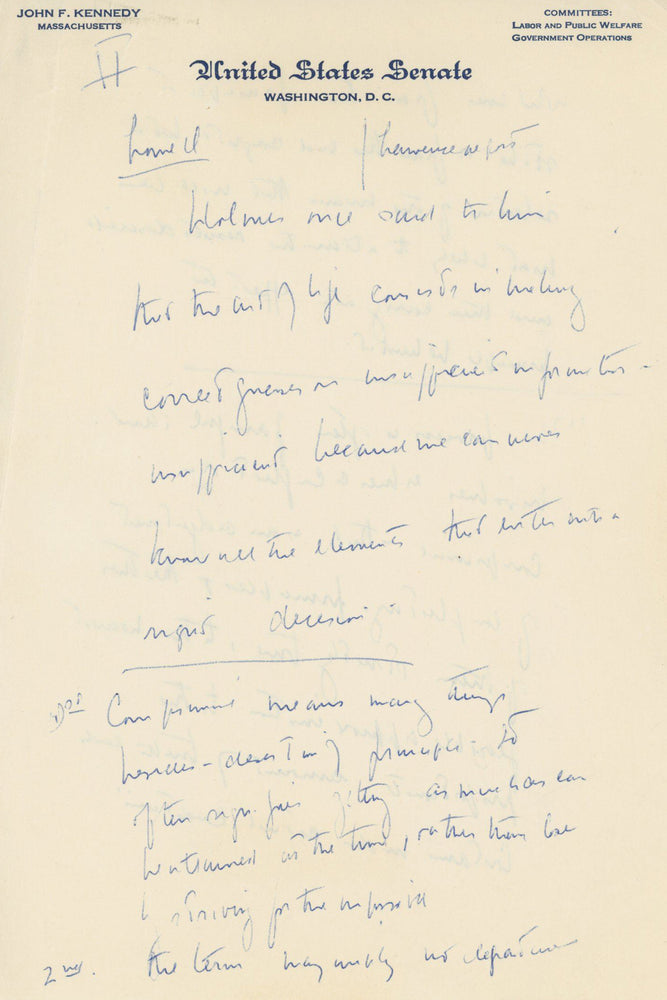 JOHN F. KENNEDY
MASSACHUSETTS
COMMITTEES:
LABOR AND PUBLIC WELFARE
GOVERNMENT OPERATIONS
II
United States Senate
WASHINGTON, D. C.
Lowell
Holmes once said to him
that the art of life consists in making
correct guesses on insufficient information -
insufficient because we can never
know all the elements that enter into a
right decision
Compromise means many things
besides - deserting principle - It
often signifies getting as much as can
be attained at the time, rather than lose
by striving for the impossible
2nd. the term may imply no departure